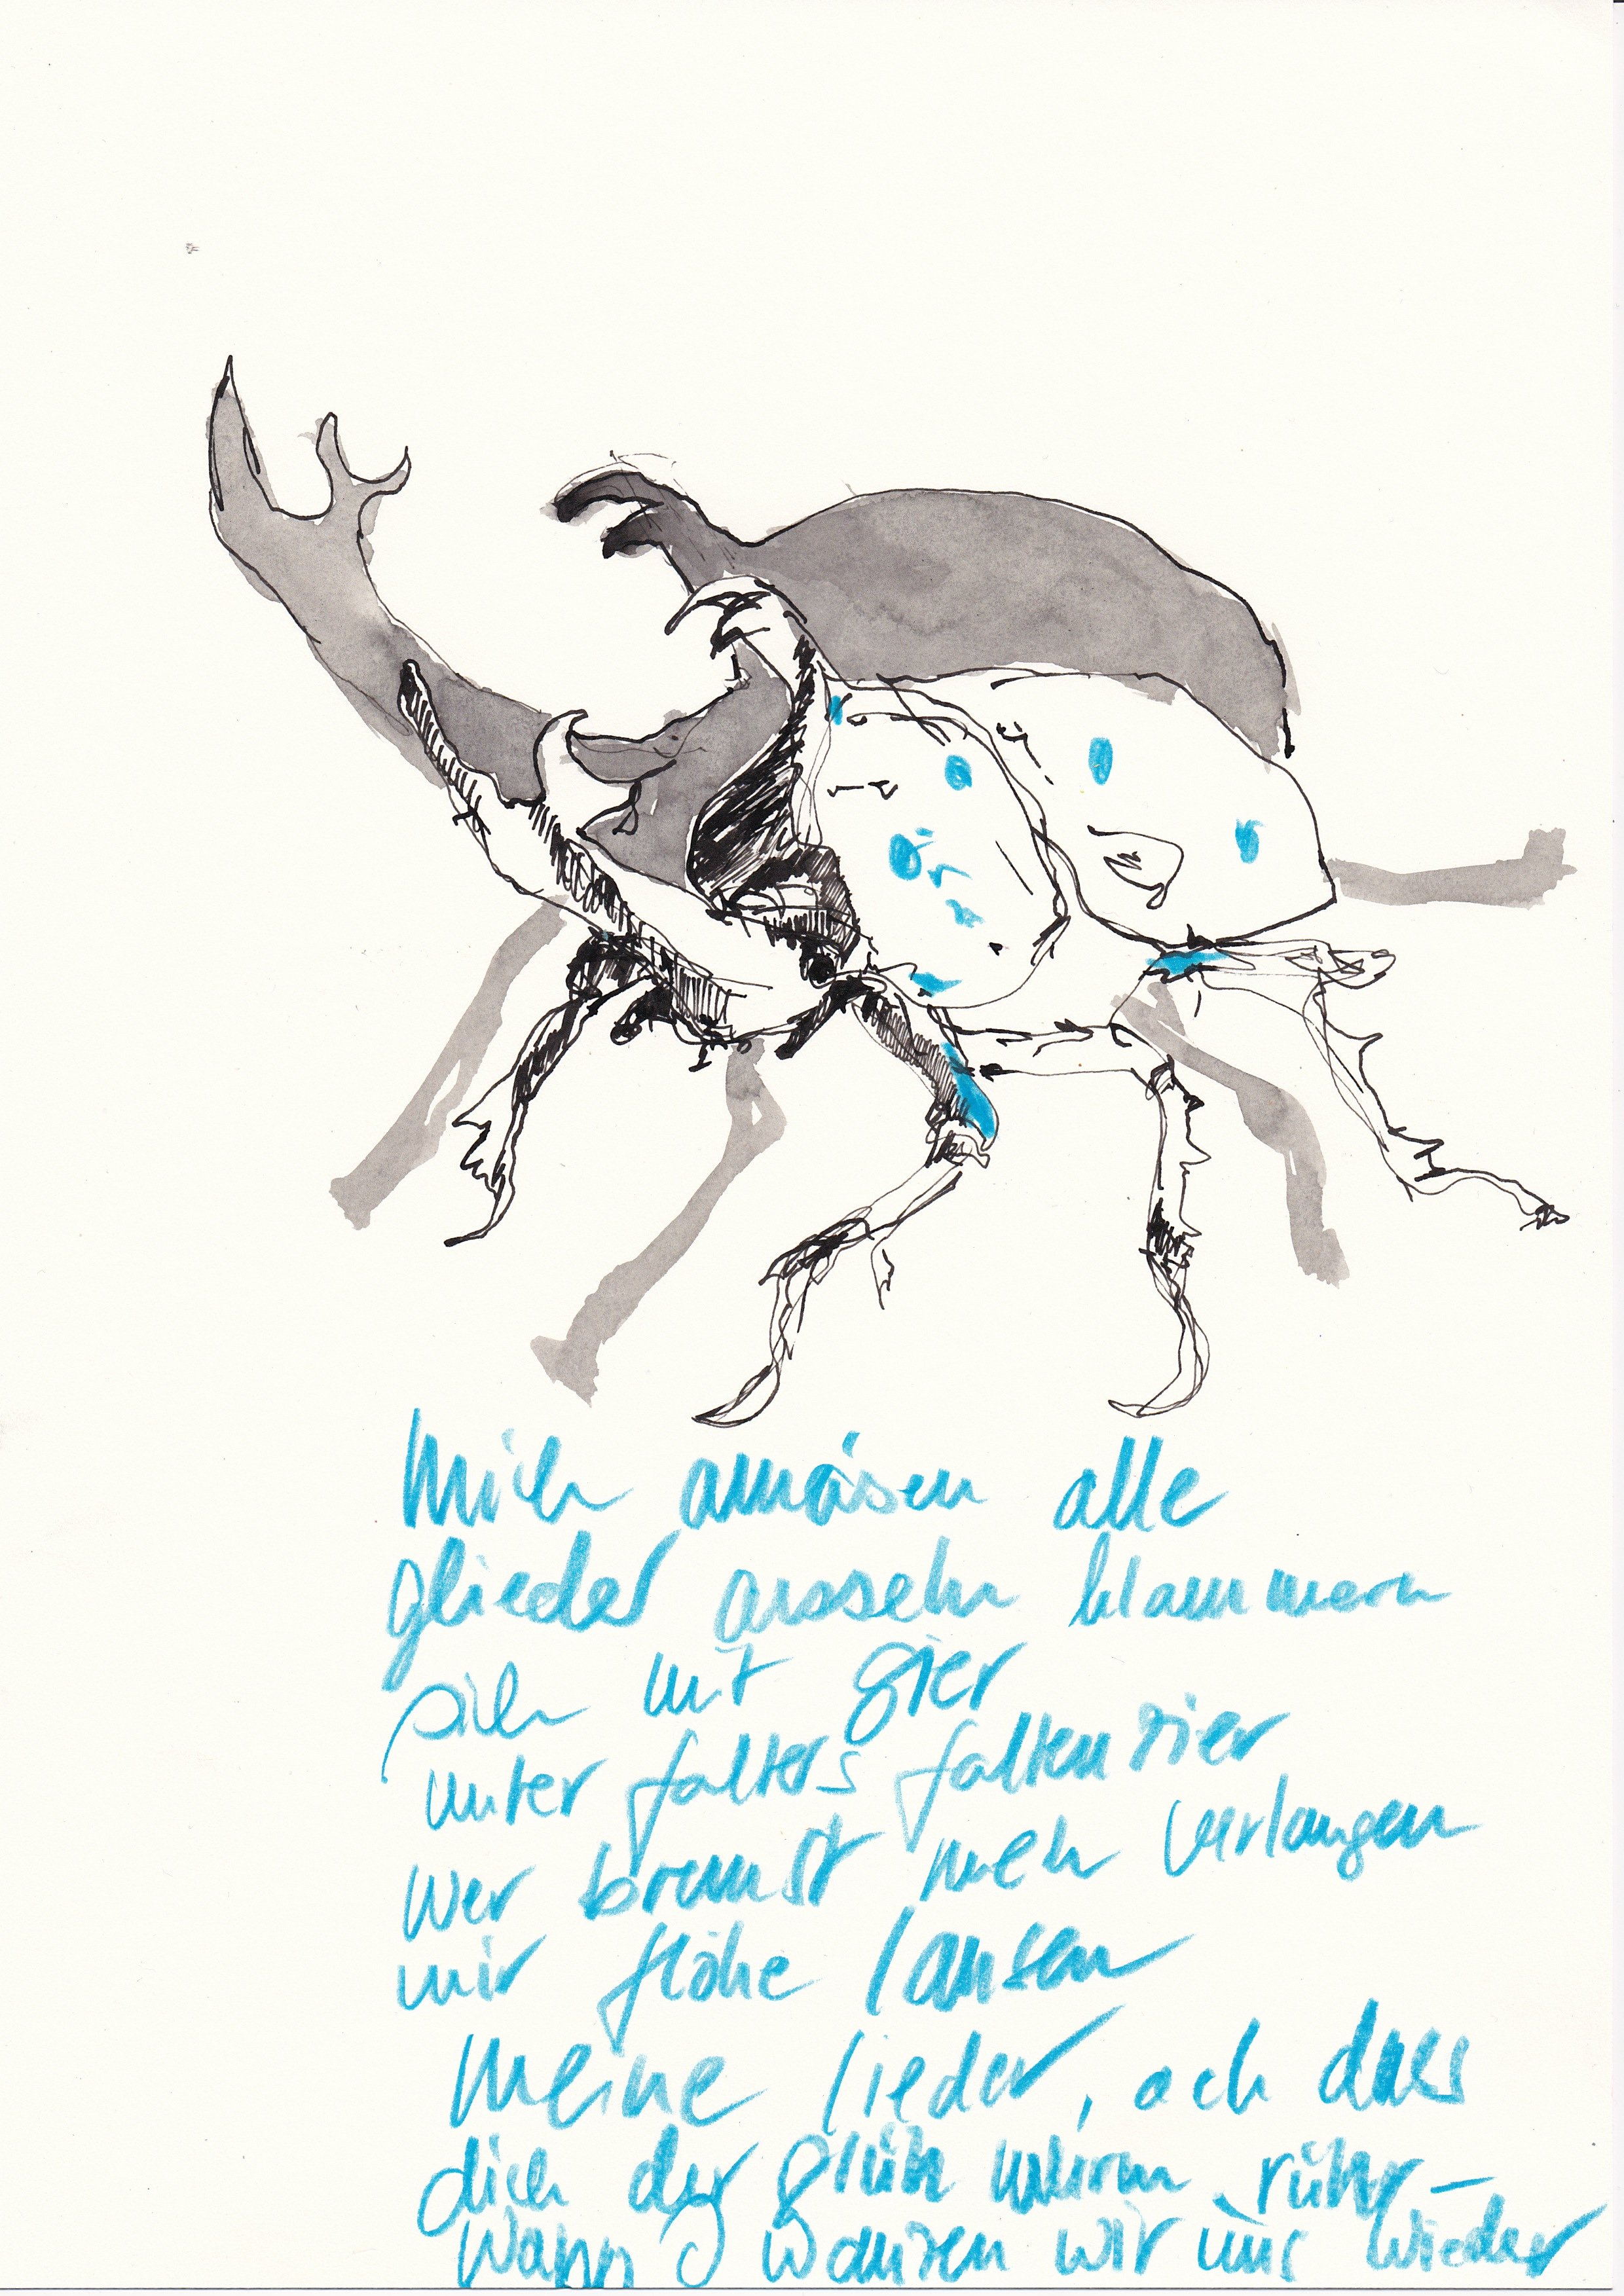 Mich amäsen alle
glieder asseln klammern
sich mit gier
unter falters faltenzier
wer bremst mein verlangen
mir flöhe lausen
meine lieder, ach dass
dich der glüh wurm rühr –
wann wanzen wir uns wieder